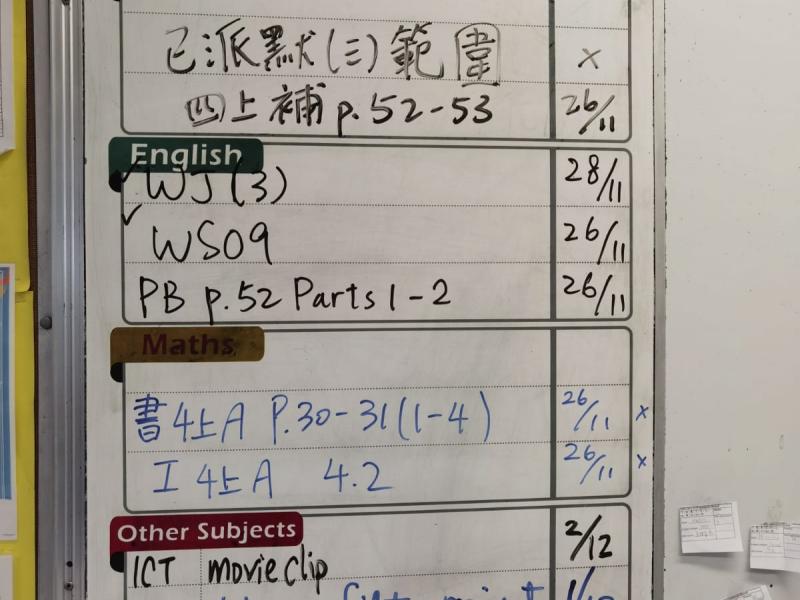 已派默(三)範圍 x
四上補 p.52-53 26/11
English
WJ(3) 28/11
WS09 26/11
PB p.52 Parts 1-2 26/11
Maths
書4上A P.30-31(1-4) 26/11 x
工4上A 4.2 26/11 x
Other Subjects
ICT movie clip 2/12